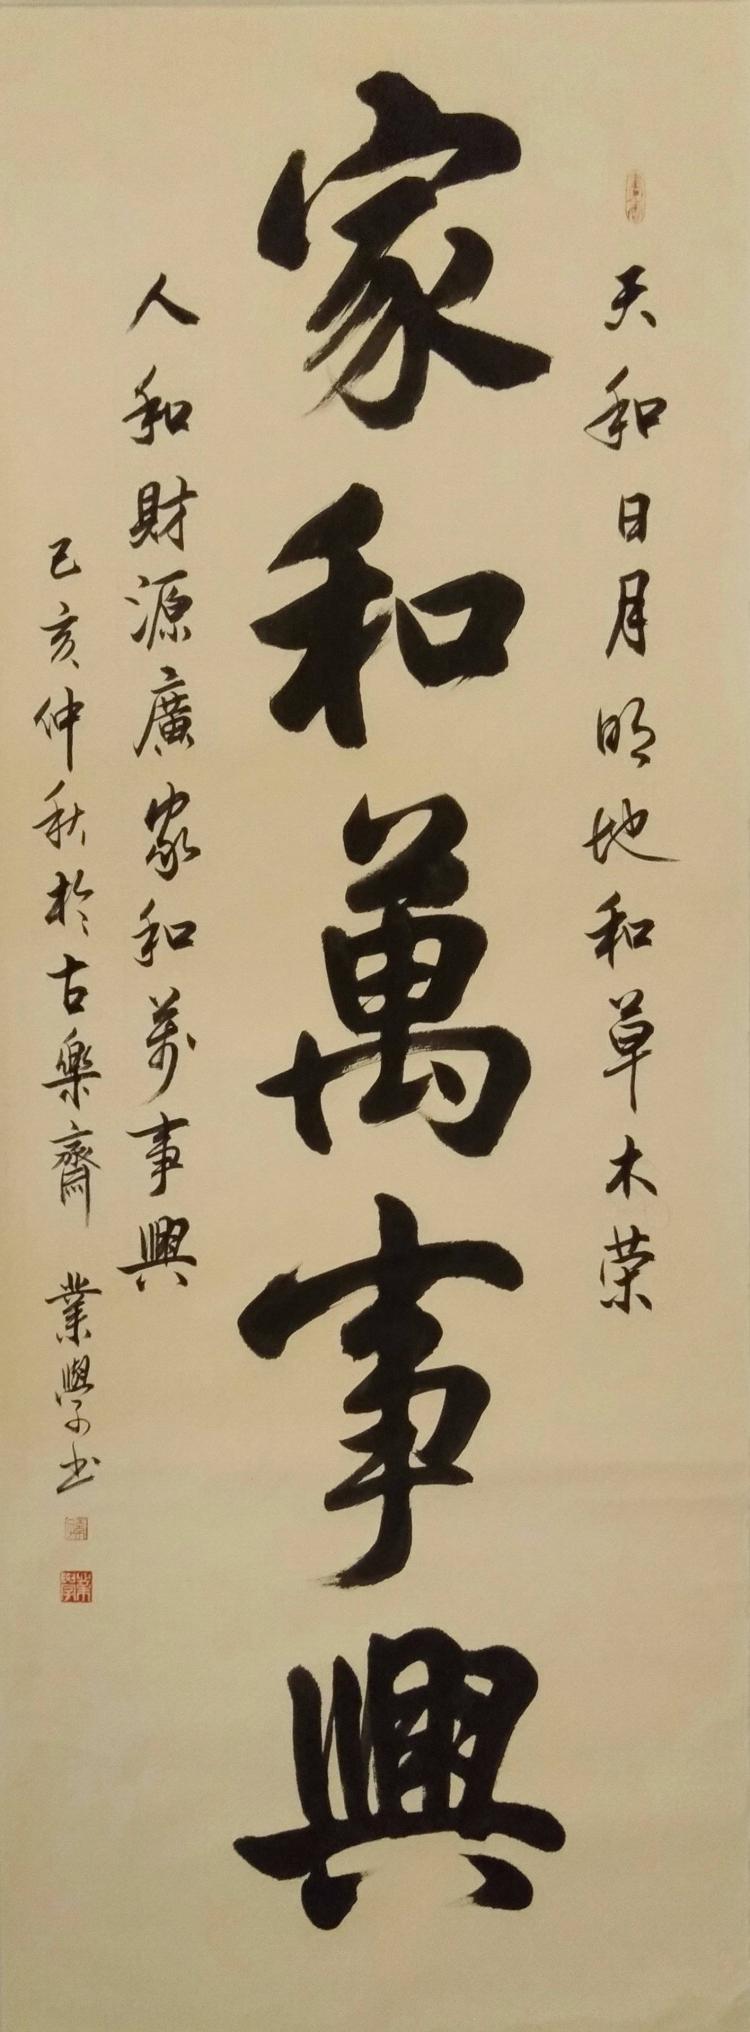 天和日月明地和草木荣
家和萬事興
人和財源廣家和萬事興
己亥仲秋於古樂齋 業學書